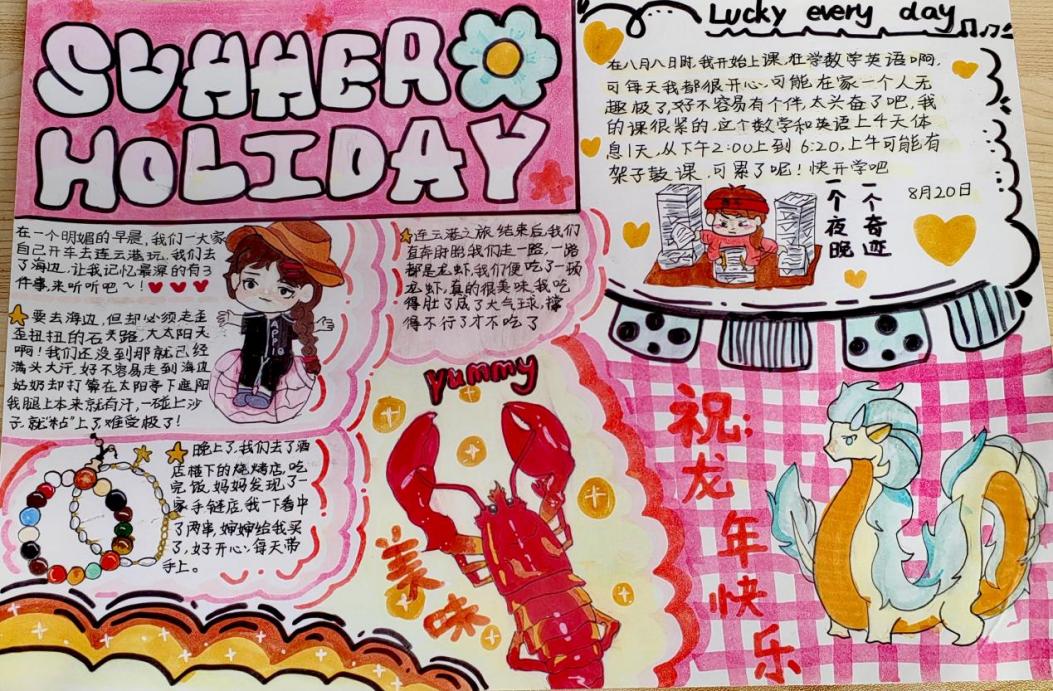 SUMMER
HOLIDAY
Lucky every day
在八月八日时,我开始上课,在学数学英语啊,
可每天我都很开心,可能在家一个人无
趣极了,好不容易有个伴,太兴奋了吧,我
的课很紧的,这个数学和英语上4天休
息1天,从下午2:00上到6:20,上午可能有
架子鼓课,可累了呢!快开学吧
8月20日
一个奇迹
一个夜晚
在一个明媚的早晨,我们一大家
自己开车去连云港玩,我们去
了海边,让我记忆最深的有3
件事,来听听吧~!
要去海边,但却必须走歪
歪扭扭的石头路,大太阳天
啊!我们还没到那就已经
满头大汗,好不容易走到海边
姑奶却打算在太阳亭下遮阳
我腿上本来就有汗,一碰上沙
子,就"粘"上了难受极了!
APPLE
晚上了,我们去了酒
店楼下的烧烤店,吃
完饭,妈妈发现了一
家手链店,我一下看中
了两串,婶婶给我买
了,好开心,每天带
手上。
连云港之旅,结束后,我们
直奔盱眙我们走一路,一路
都是龙虾,我们便吃了一顿
龙虾,真的很美味,我吃
得肚了成了大气球,撑
得不行了才不吃了
Yummy
美味
祝:
龙
年
快
乐